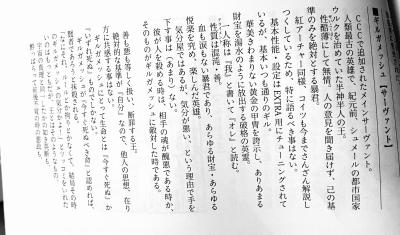 ■ギルガメッシュ【サーヴァント】
CCCで追加されたメインサーヴァント。
人類最古の英雄で、紀元前、シュメールの都市国家
ウルクを治めていた半神半人の王。
性格酷薄にして無情、人の意見を聞き届けず、己の基
準のみを絶対とする暴君。
紅アーチャー同様、コイツも今までさんざん解説し
つくしているため、特に語るべき事はない。
基本性能・設定はEXTRA用にチューニングされて
いるが、基本いつも通りのギルギル。
華美きわまりない黄金の甲冑を誇示し、ありあまる
財宝を湯水のように放出する破格の英霊。
一人称は『我』と書いて『オレ』と読む。
性質は混沌・善。
血も涙もない暴君であり、あらゆる財宝・あらゆる
悦楽を究め、楽しんだ英雄。
気分屋ではあるが、気分が悪い、という理由で手を
下す事は（あまり）ない。
彼が人を殺める時は、相手の魂が醜悪である時か、
そのものがギルガメッシュに敵対した時である。
善も悪も等しく扱い、断罪する王。
絶対的な基準が“自分”なので、他人の思想、在り
方に共感する事はない。
ギルガメッシュにとって生命とは『今すぐ死ぬ』か
『いずれ死ぬ』ものでしかなく、